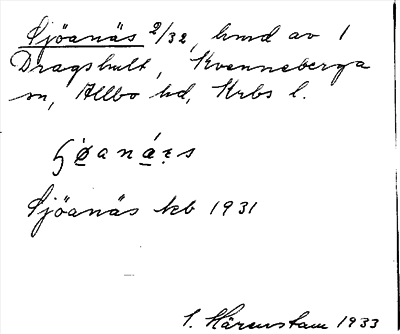 Sjöanäs 2/32, hmd av 1
Dragshult, Kvenneberga
sn, Allbo hd, Krbs l.
Sjöanäs kb 1931
I. Härenstam 1933